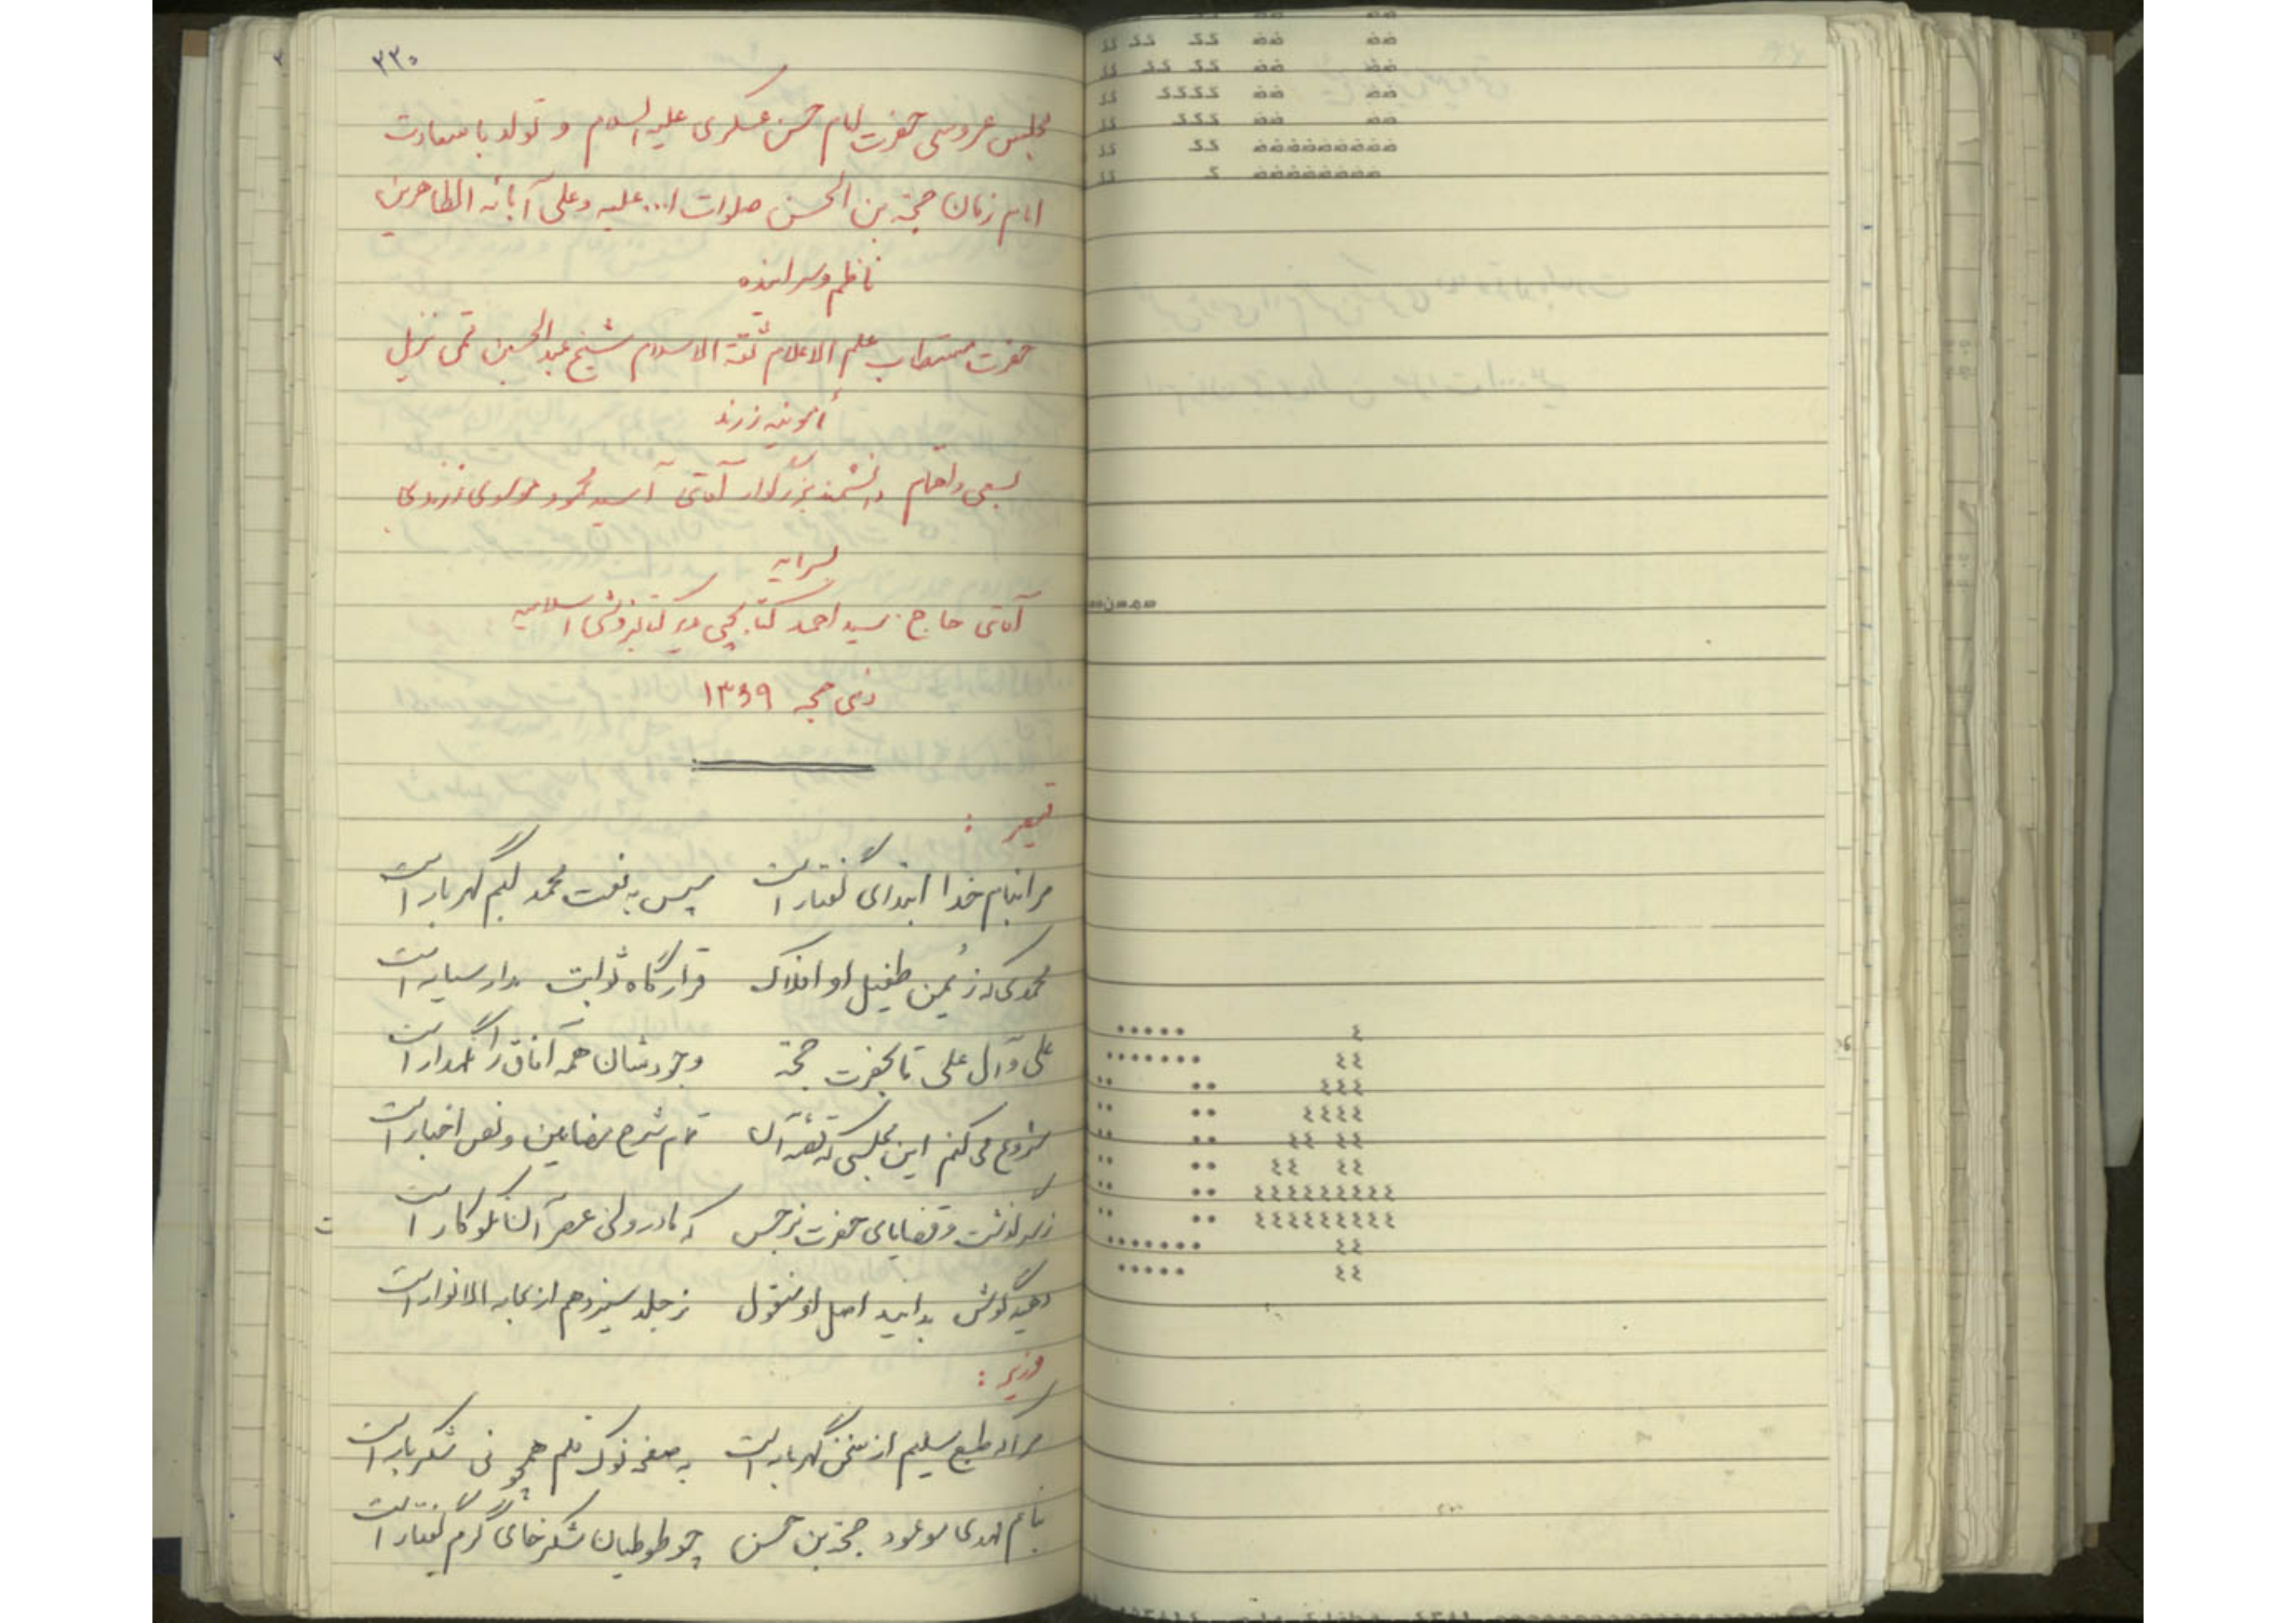 ۳۳۰
مجلس عروسی حضرت امام حسن عسکری علیه السلام و تولد با سعادت
امام زمان حجة بن الحسن صلوات ا... علیه وعلی آبائه الطاهرین
ناظم و سراینده
حضرت مستطاب علم الاعلام ثقة الاسلام شیخ عبدالحسین قمی نزیل
مأمونیه زرند
بسعی و اهتمام دانشمند بزرگوار آقای آسید محمود مولوی زرندی
بسرمایه
آقای حاج سید احمد کتابچی مدیر کتابفروشی اسلامیه
ذی حجه ۱۳۶۹
قیصر :
مرا بنام خدا ابتدای گفتار است سپس به نعت محمد لبم گهربار است
محمدی که ز یُمن طفیل او افلاک قرارگاه ثوابت مدار سیار است
علی و آل علی تا بحضرت حجة وجودشان همه آفاق را نگهدار است
شروع می کنم این مجلسی که قصه آن تمام شرح مضامین و نص اخبار است
ز سرگذشت و قضایای حضرت نرجس که مادر ولی عصر آن نکوکار است
دهید گوش بدانید اصل او منقول ز جلد سیزدهم از بحار الانوار است
وزیر :
مرا که طبع سلیم از سخن گهربار است به صفحه نوک قلم همچو نی شکربار است
بنام مهدی موعود حجة بن حسن چو طوطیان شکرخای گرم گفتار است